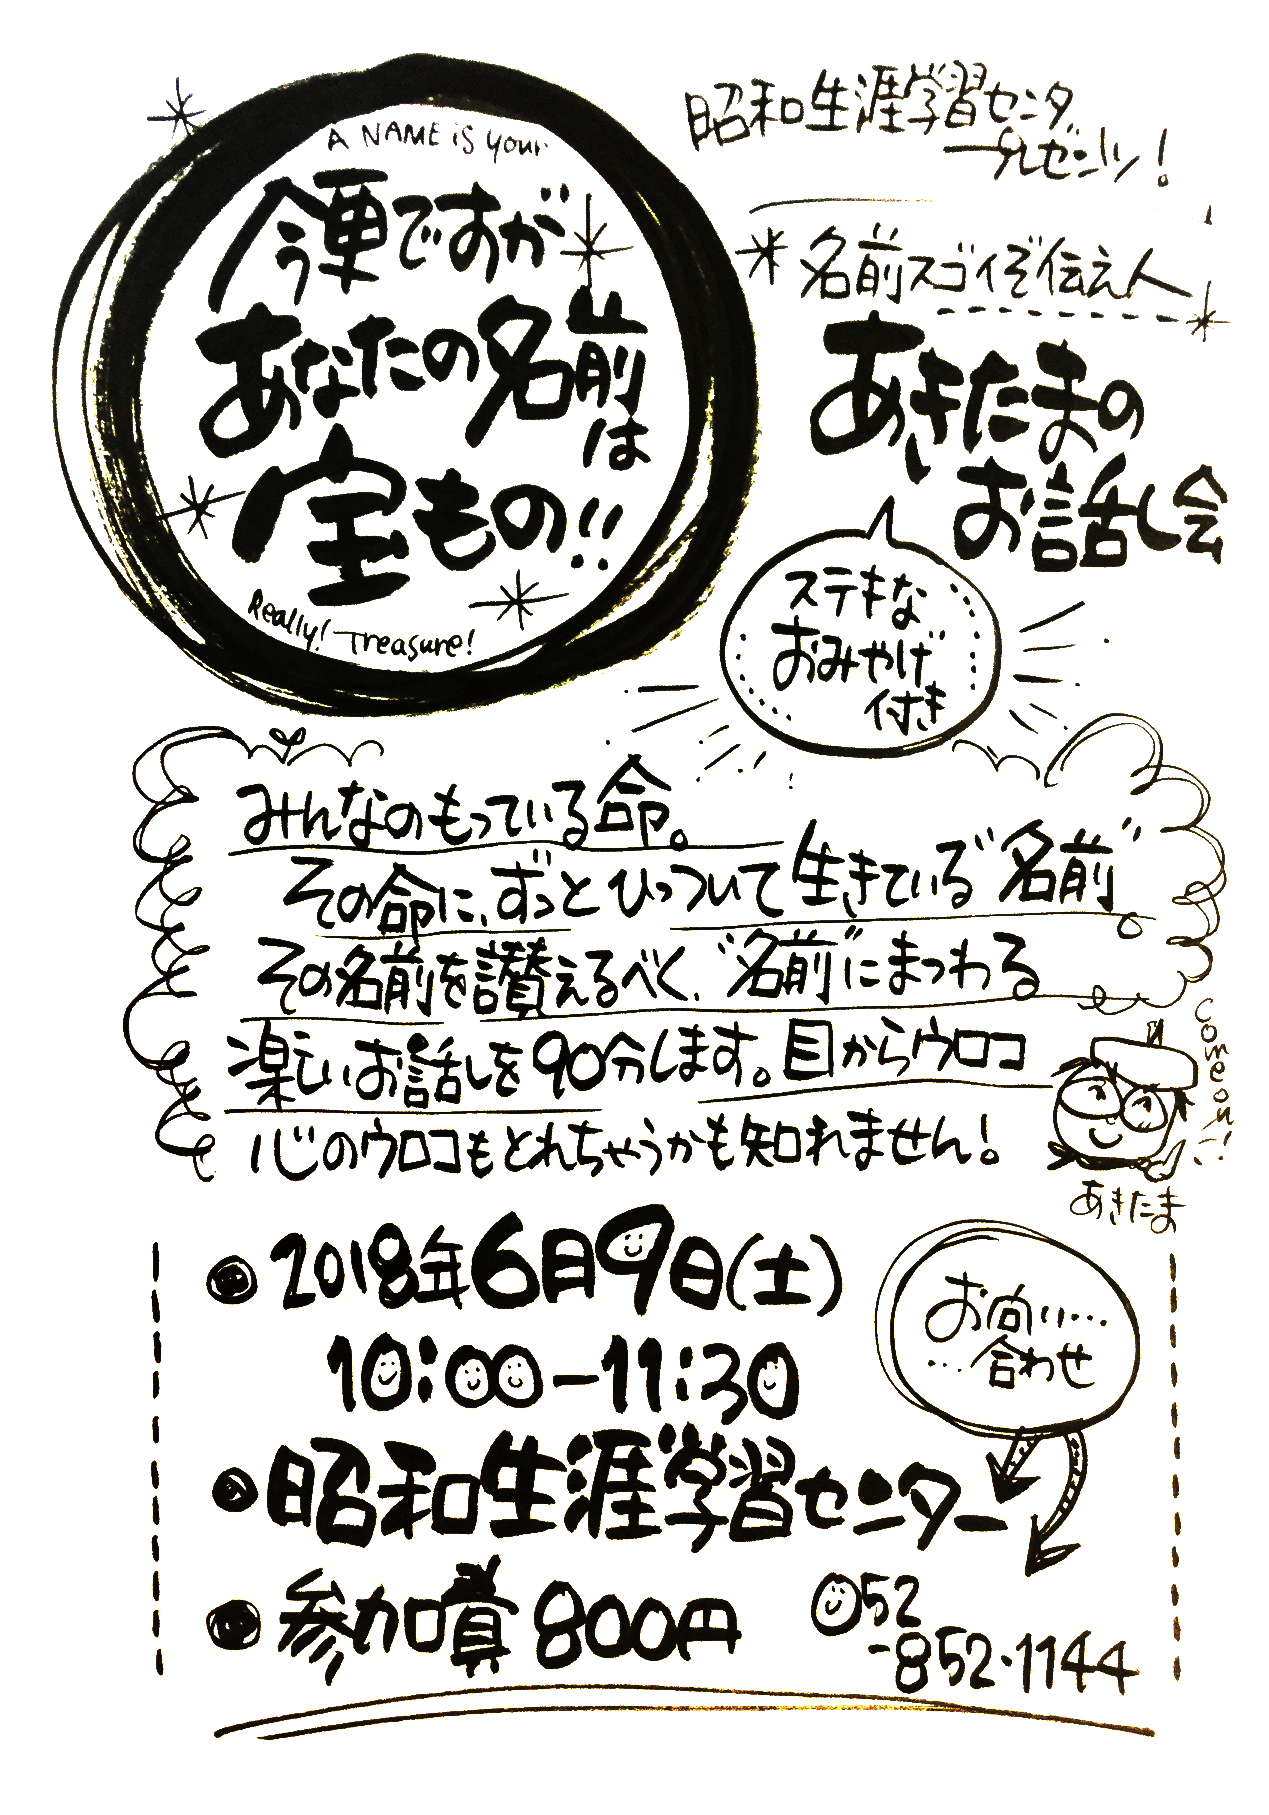 A NAME is your
今更ですが
あなたの名前
は
宝もの!!
Really! Treasure!
昭和生涯学習センター
プレゼンツ!
名前スゴイぞ伝え人
あきたまの
お話し会
ステキな
おみやげ
付き
みんなのもっている命。
その命に、ずっとひっついて生きている"名前"。
その名前を讃えるべく、"名前"にまつわる
楽しいお話しを90分します。目からウロコ
心のウロコもとれちゃうかも知れません!
come on!
あきたま
2018年6月9日(土)
10:00-11:30
昭和生涯学習センター
参加費800円
お向い…
…合わせ
052
-852-1144